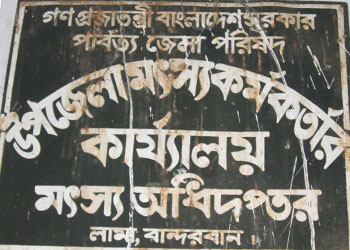 গণ প্রজাতন্ত্রী বাংলাদেশ সরকার
পার্বত্য জেলা পরিষদ
উপজেলা মৎস্য কর্মকর্তার
কার্য্যালয়
মৎস্য অধিদপ্তর
লামা, বান্দরবান ।